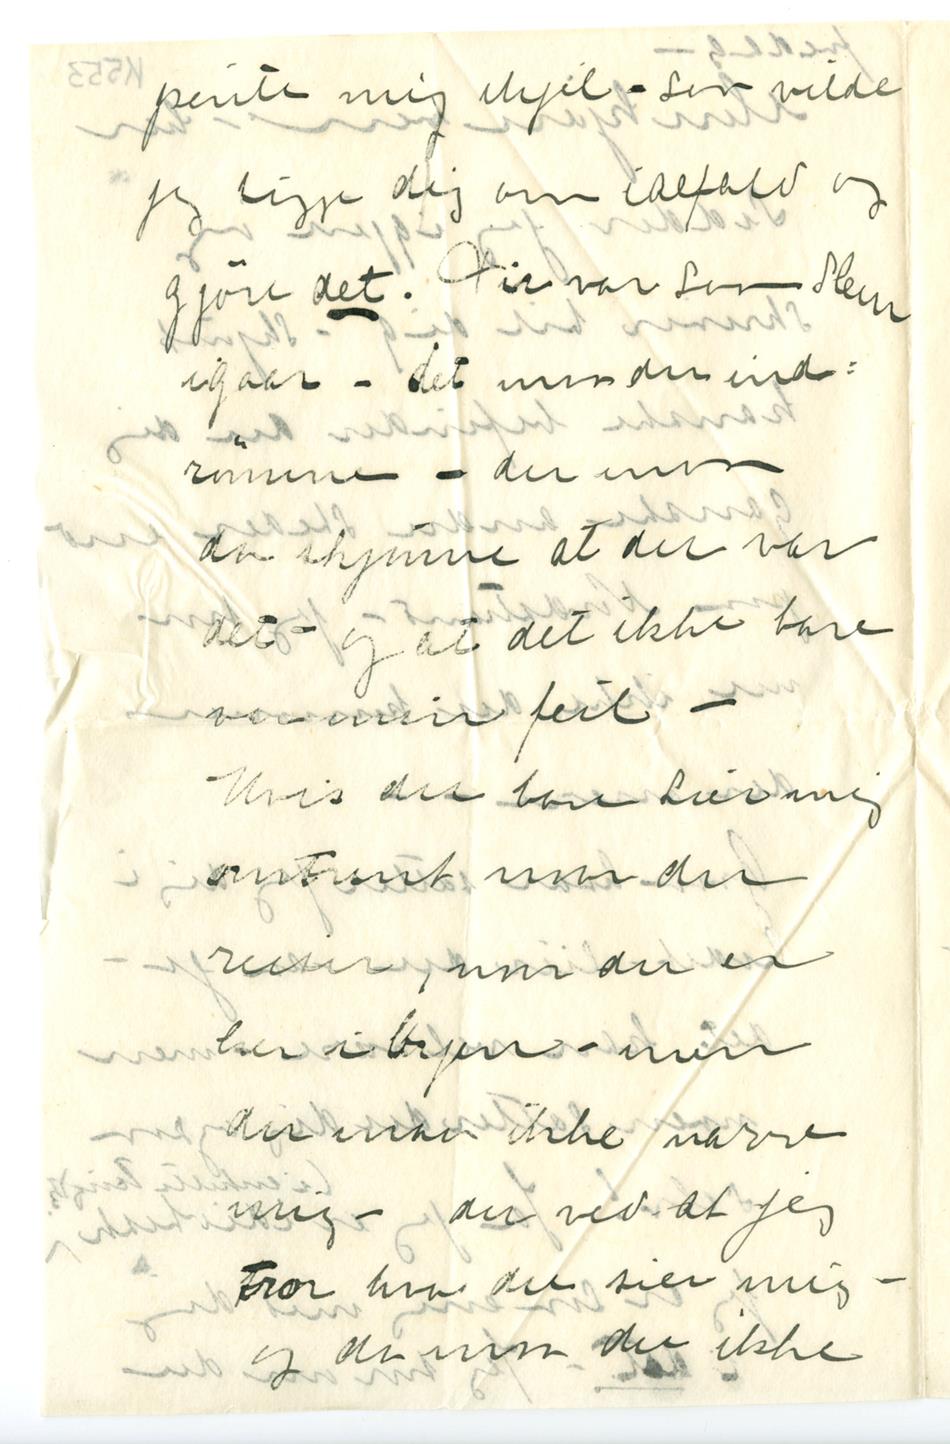 pente mig ihjel – saa vilde
jeg ligge dig om ialfald og
gjöre det. Du var saa slem
igaar – det maa du ind=
römme – du maa
da skjönne at du var
det – og at det ikke bare
var min feil –
Hvis du bare sier mig
omtrent naar du
reiser, naar du er
her i byen – men
du maa ikke narre
mig – du ved at jeg
tror hva du sier mig –
og da maa du ikke
K553